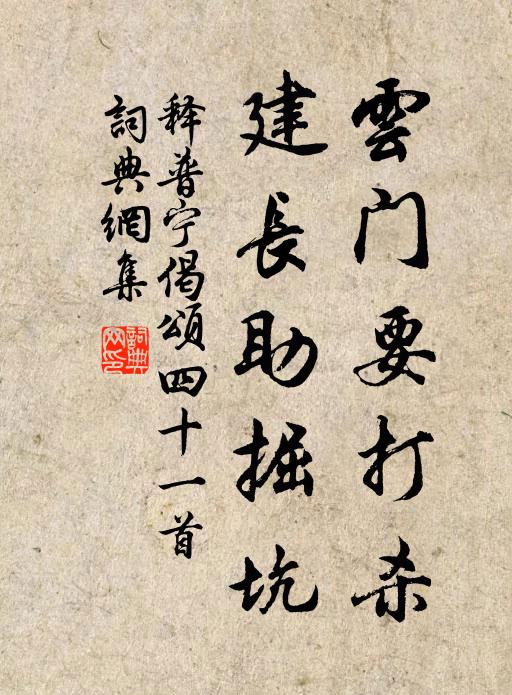 雲门要打杀
建長助掘坑
释普宁偈頌四十一首
詞典網集
詞典网印